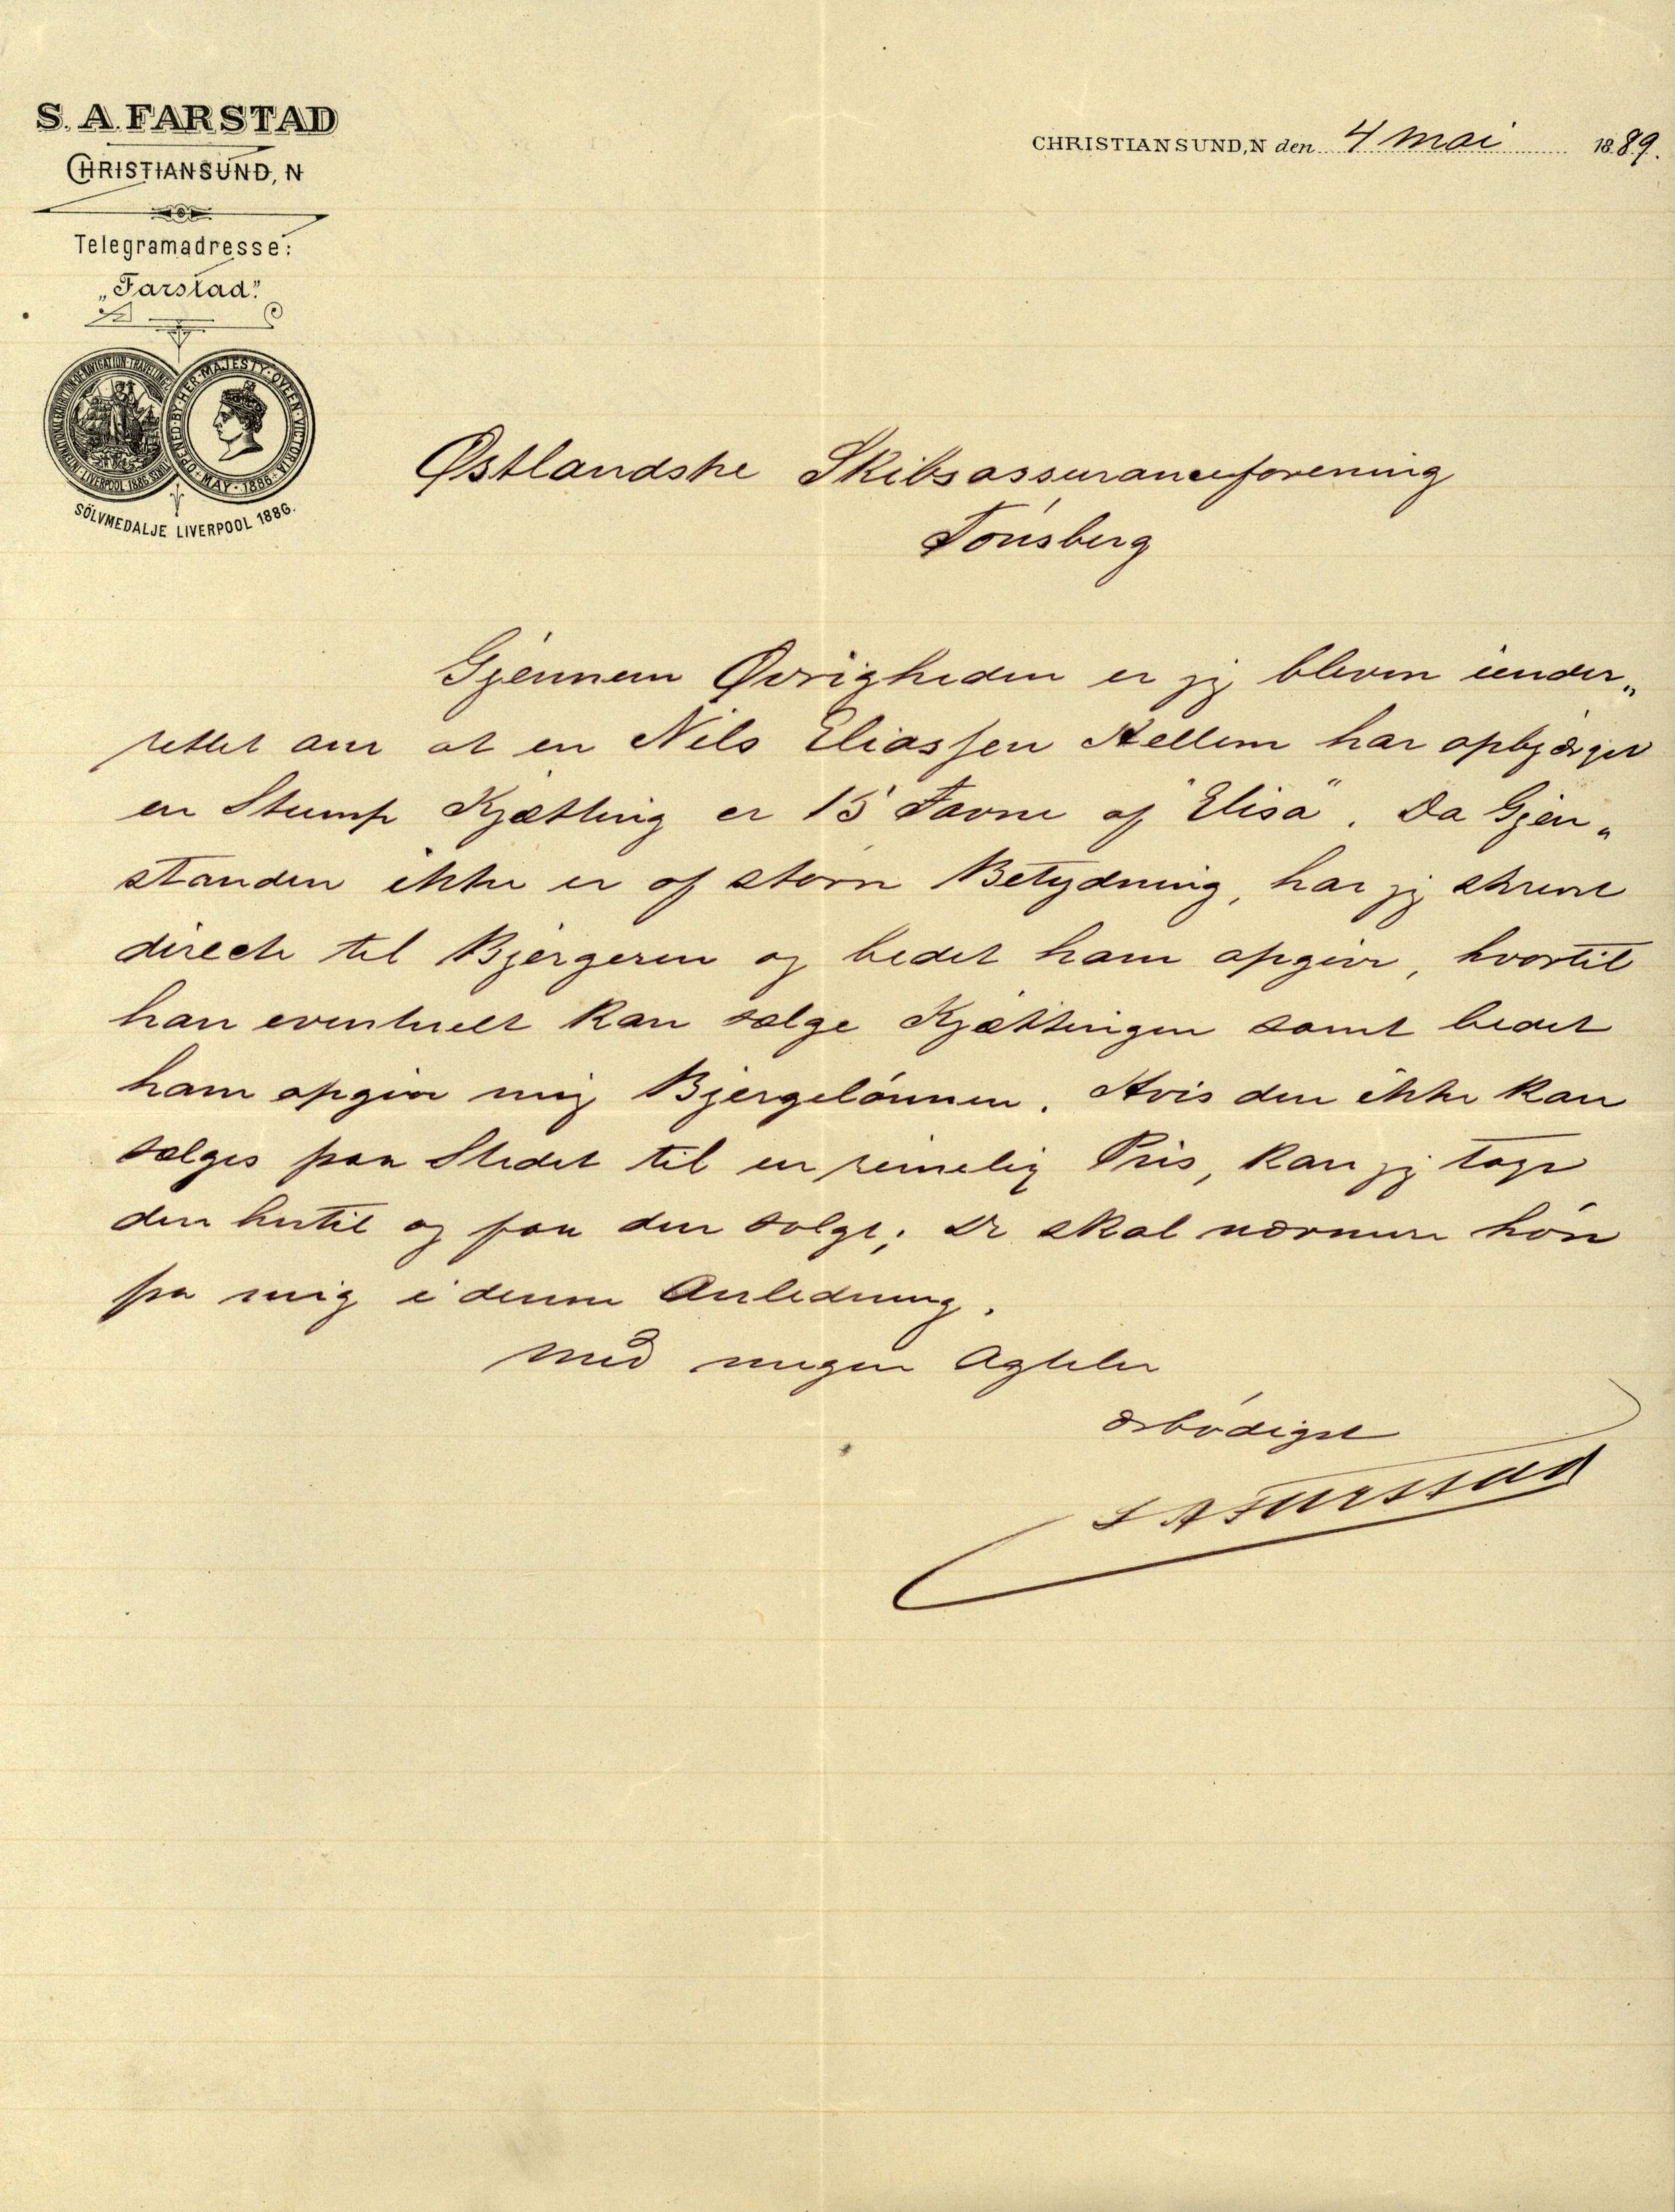 S. A. FARSTAD
CHRISTIANSUND, N
Telegramadresse:
„Farstad."
INTERNATIONAL EXHIBITION OF NAVIGATION TRAVELLING
LIVERPOOL 1886
OPENED BY HER MAJESTY QVEEN VICTORIA
MAY 1886
SÖLVMEDALJE LIVERPOOL 1886.
CHRISTIANSUND, N den 4 Mai 1889.
Østlandske Skibsassuranceforening
Tónsberg
Gjennem Øvrigheden er jeg bleven under„
rettet om at en Nils Eliassen Hellem har opbjerget
en Stump Kjætting ca 15 Favne af "Elisa". Da Gjen„
standen ikke er af større Betydning, har jeg skrevet
directe til Bjergeren og bedet ham opgive, hvortil
han eventuelt kan sælge Kjættingen samt bedet
ham opgive mig Bjergelónnen. Hvis den ikke kan
sælges paa Stedet til en rimelig Pris, kan jeg tage
den hertil og faa den solgt; De skal nærmere höre
fra mig i denne Anledning.
Med megen Agtelse
ærbódigst
S A Farstad